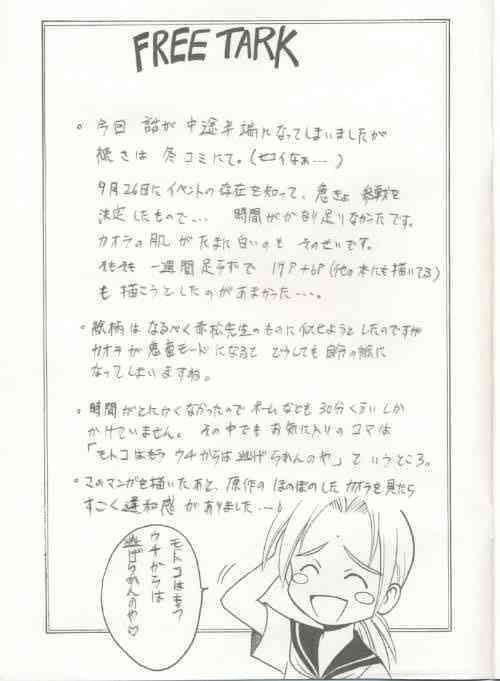 FREE TARK
。今回 話が中途半端になってしまいましたが
続きは 冬コミにて。(セコイなぁ…)
9月26日にイベントの存在を知って、急きょ 参戦を
決定したもので… 時間がかなり足りなかたです。
カオラの肌がたまに白いのも そのせいです。
そもそも 一週間足らずで 19P+6P(他の本にも描いてる)
も描こうとしたのがあまかった…。
。絵柄はなるべく赤松先生のものに似せようとしたのですが
カオラが鬼畜モードになると どうしても自分の絵に
なってしまいますね。
。時間がとにかくなかったので ネームなども30分くらいしか
かけていません。その中でもお気に入りのコマは
「モトコはもう ウチからは逃げられへんのや」ていうところ。
。このマンガを描いたあと、原作のほのぼのしたカオラを見たら
すごく違和感がありました…
モトコはもう
ウチからは
逃げられへんのや♡